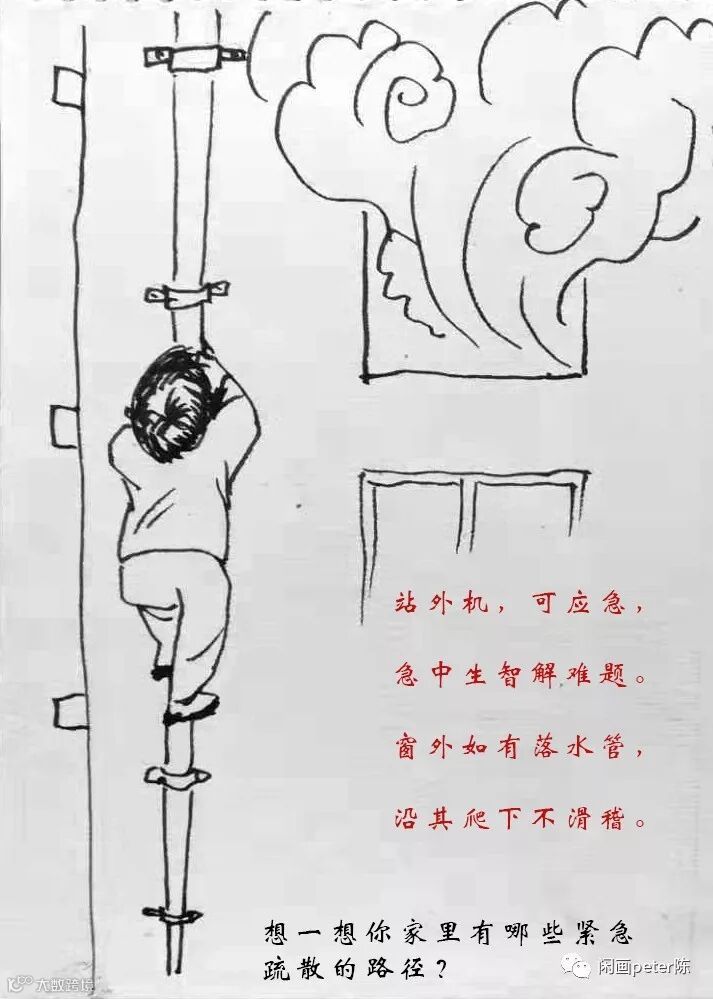 站外机，可应急，
急中生智解难题。
窗外如有落水管，
沿其爬下不滑稽。
想一想你家里有哪些紧急
疏散的路径？
闲画peter陈
大数跨境